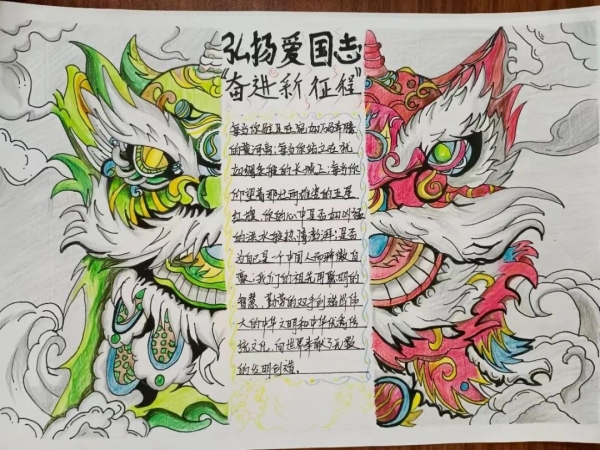 弘扬爱国志
"奋进新征程"
每当你驻足在宛如万马奔腾
的黄河旁;每当你站立在礼
如绸条般的长城上;每当你
仰望着那壮丽雄姿的五星
红旗,你的心中是否如
的洪水般热情澎湃;是否
为自己是一个中国人而骄傲自
豪;我们的祖先用聪明的
智慧、勤劳的双手创造出伟
大的中华文明和中华优秀传
统文化,向世界奉献了无数
的发明创造。